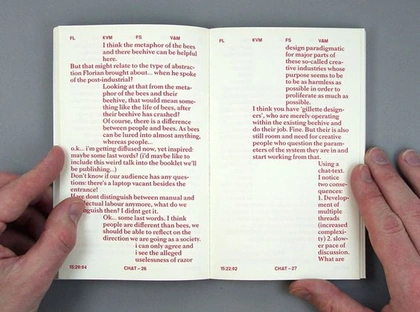 FL KVM FS V&M
I think the metaphor of the bees
and there beehive can be helpful
here.
But that might relate to the type of abstrac-
tion Florian brought about... when he spoke
of the post-industrial?
Looking at that from the meta-
phor of the bees and their
beehive, that would mean some-
thing like the life of bees, after
their beehive has crashed?
Of course, there is a difference
between people and bees. As bees
can be lured into almost anything,
whereas people...
o.k... i'm getting diffused now, yet inspired:
maybe some last words? (i'd maybe like to
include this weird talk into the booklet we'll
be publishing..)
Don't know if our audience has any ques-
tions: there's a laptop vacant besides the
entrance!
dont distinguish between manual and
ectual labour anymore, what do we
nguish then? I didnt get it.
Ok... some last words. I think
people are different than bees, we
should be able to reflect on the
direction we are going as a society.
i can only agree and
i see the alleged
uselessness of razor
15:20:04 CHAT – 26
FL KVM FS V&M
design paradigmatic
for major parts of
these so-called crea-
tive industries whose
purpose seems to be
to be as harmless as
possible in order to
proliferate as much as
possible.
I think you have 'gillette design-
ers', who are merely operating
within the existing beehive and
do their job. Fine. But their is also
still room and need for creative
people who question the param-
eters of the system they are in and
start working from that.
Using a
chat-text.
I notice
two conse-
quences:
1. Develop-
ment of
multiple
threads
(increased
complexi-
ty) 2. slow-
er pace of
discussion.
What are
15:22:02 CHAT – 27